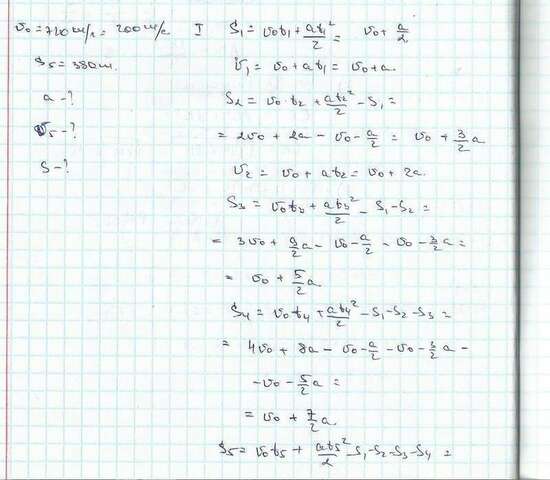 v₀ = 720 км/ч = 200 м/с. I S₁ = v₀t₁ + at₁²/2 = v₀ + a/2
S₅ = 380 м. v₁ = v₀ + at₁ = v₀ + a.
a - ? S₂ = v₀·t₂ + at₂²/2 - S₁ =
v₅ - ? = 2v₀ + 2a - v₀ - a/2 = v₀ + 3/2 a
S - ? v₂ = v₀ + at₂ = v₀ + 2a.
S₃ = v₀t₃ + at₃²/2 - S₁ - S₂ =
= 3v₀ + 9/2 a - v₀ - a/2 - v₀ - 3/2 a =
= v₀ + 5/2 a.
S₄ = v₀t₄ + at₄²/2 - S₁ - S₂ - S₃ =
= 4v₀ + 8a - v₀ - a/2 - v₀ - 3/2 a -
- v₀ - 5/2 a =
= v₀ + 7/2 a.
S₅ = v₀t₅ + at₅²/2 - S₁ - S₂ - S₃ - S₄ =